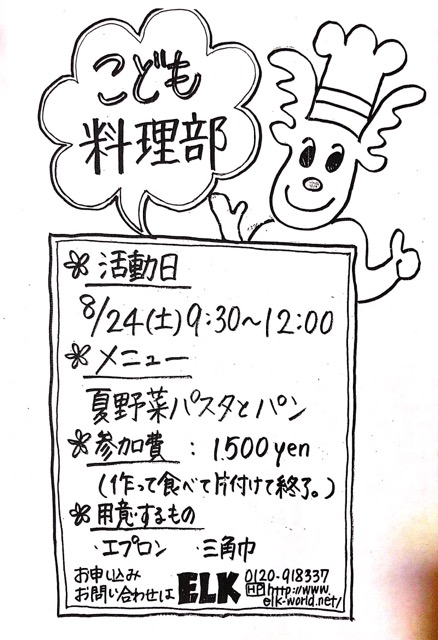 こども
料理部
活動日
8/24(土)9:30~12:00
メニュー
夏野菜パスタとパン
参加費 : 1.500yen
(作って食べて片付けて終了。)
用意するもの
・エプロン ・三角巾
お申し込み
お問い合わせは ELK 0120-918337
HP http://www.
elk-world.net/